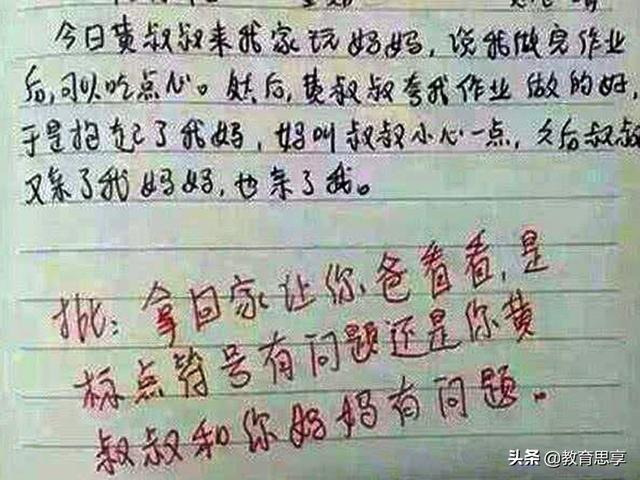 今日黄叔叔来我家玩妈妈，说我做完作业
后，可以吃点心。然后，黄叔叔夸我作业做的好，
于是抱起了我妈，妈叫叔叔小心一点，之后叔叔
又亲了我妈妈，也亲了我。
批：拿回家让你爸看看，是
标点符号有问题还是你黄
叔叔和你妈妈有问题。
头条 @教育思享